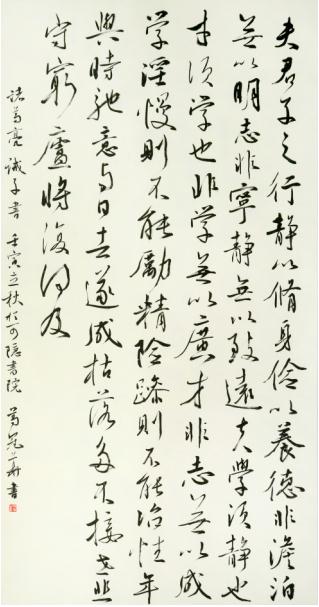 夫君子之行靜以脩身儉以養德非澹泊
無以明志非寧靜無以致遠夫學須靜也
才須学也非学無以廣才非志無以成
学淫慢則不能勵精險躁則不能治性年
與時馳意与日去遂成枯落多不接世悲
守窮廬將復何及
諸葛亮 誡子書 壬寅立秋於可隱書院 書